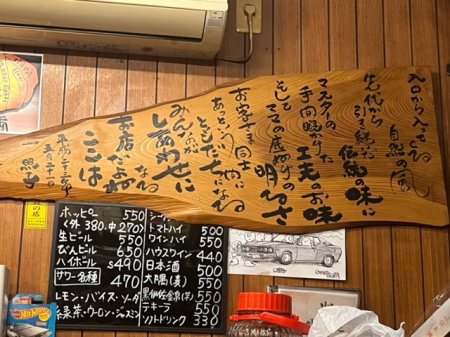 入口から入ってくる
自然の風
先代から
引き継いだ
伝統の味に
マスターの
手間暇かけた
工夫のお味
そして
ママの底抜けの
明るさ
お客さま同士
みんな
しあわせに
なれる
お店だよ
ここは
平成二十三年
五月二十一日
ホッピー 550
(外380.中270)
生ビール 550
びんビール 650
ハイボール 490
サワー各種 470
レモン・バイス・ソーダ
緑茶・ウーロン・ジャスミン
トマトハイ 500
ワインハイ 550
ハウスワイン 440
日本酒 500
大隅(麦) 550
黒伊佐錦(芋) 550
テキーラ 550
ソフトドリンク 330
の店
Hot Wheels